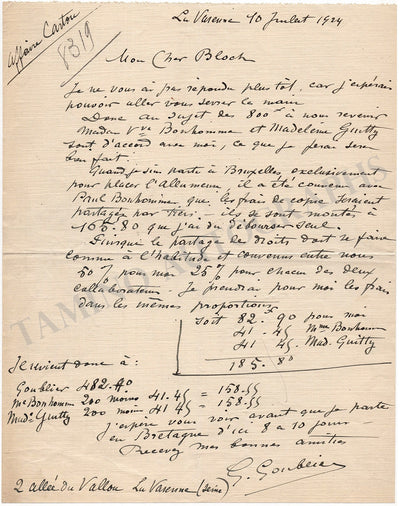 Affaire Carton
8319
La Varenne 10 Juillet 1924
Mon Cher Bloch
Je ne vous ai pas répondu plus tôt, car j'espérais
pouvoir aller vous serrer la main
Donc au sujet des 800 f à nous revenir
Madame Vve Bonhomme et Madeleine Guitty
sont d'accord avec moi, ce que je ferai sera
bien fait.
Quand je suis parti à Bruxelles exclusivement
pour placer l'Allumeuse, il a été convenu avec
Paul Bonhomme, que les frais de copie seraient
partagés par tiers. ils se sont montés à
165.80 que j'ai dû débourser seul.
Puisque le partage de droits doit se faire
comme à l'habitude et convenu entre nous
50% pour moi 25% pour chacun des deux
collaborateurs. Je prendrai pour moi les frais
dans les mêmes proportions
soit 82.90 pour moi
41.45 Mme Bonhomme
41.45 Mad. Guitty
185.80
Il revient donc à:
Goublier 482.40
Me Bonhomme 200 moins 41.45 = 158.55
Made Guitty 200 moins 41.45 = 158.55
J'espère vous voir avant que je parte
en Bretagne d'ici 8 à 10 jours
Recevez mes bonnes amitiés
G. Goublier
2 allée du Vallon La Varenne (Seine)
TAMINO AUTOGRAPHS